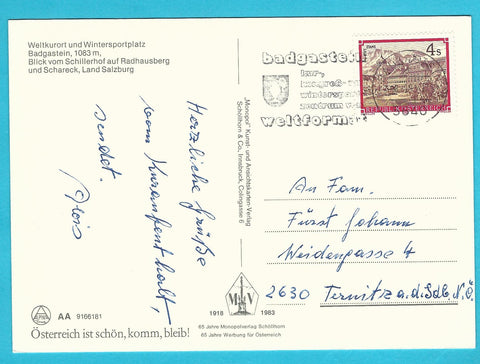 Weltkurort und Wintersportplatz
Badgastein, 1083 m,
Blick vom Schillerhof auf Radhausberg
und Schareck, Land Salzburg
Herzliche Grüße
vom Kuraufenthalt,
sendet.
Alois
„Monopol“ Kunst- und Ansichtskarten-Verlag
Schöllhorn & Co., Innsbruck, Colingasse 6
badgastein
kur,
kongreß-
wintersport
zentrum
weltformat
4 s
REPUBLIK ÖSTERREICH
An Fam.
Fürst Johann
Weidengasse 4
2630 Ternitz a.d. Sdb. N.Ö.
AA 9166181
Österreich ist schön, komm, bleib!
M V
1918 1983
65 Jahre Monopolverlag Schöllhorn
65 Jahre Werbung für Österreich